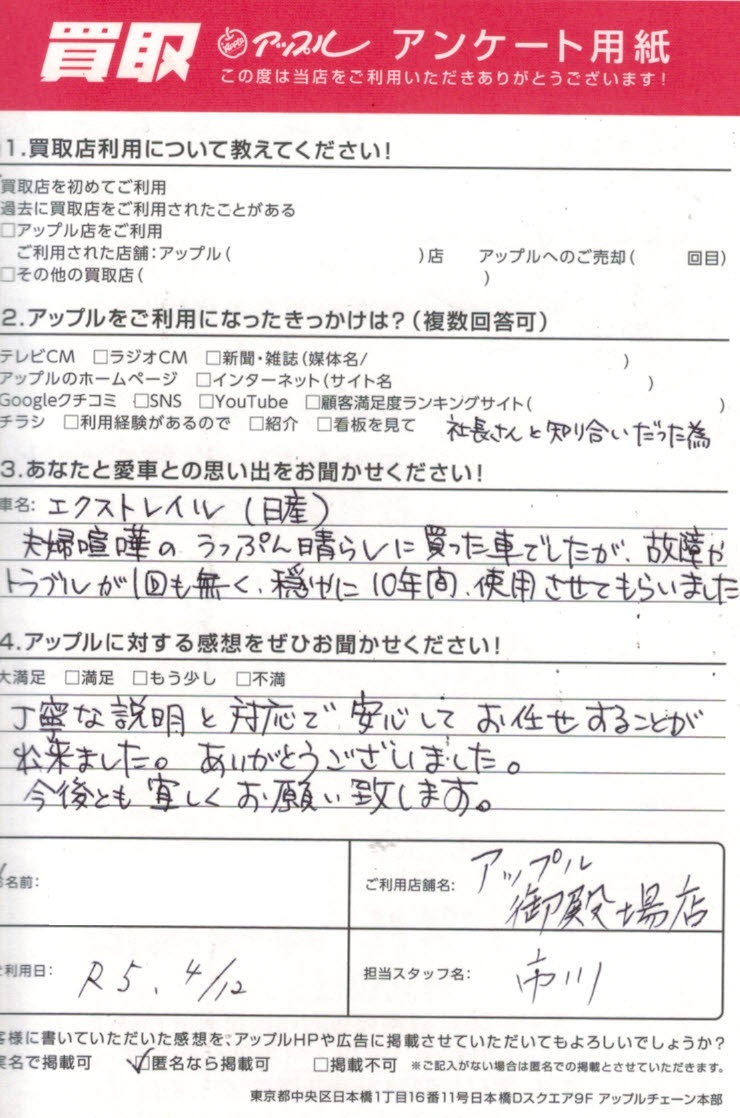 買取 アップル アンケート用紙
この度は当店をご利用いただきありがとうございます!
1.買取店利用について教えてください!
買取店を初めてご利用
過去に買取店をご利用されたことがある
□アップル店をご利用
ご利用された店舗:アップル( )店 アップルへのご売却( 回目)
□その他の買取店( )
2.アップルをご利用になったきっかけは?(複数回答可)
テレビCM □ラジオCM □新聞・雑誌(媒体名/ )
アップルのホームページ □インターネット(サイト名 )
Googleクチコミ □SNS □YouTube □顧客満足度ランキングサイト( )
チラシ □利用経験があるので □紹介 □看板を見て 社長さんと知り合いだった為
3.あなたと愛車との思い出をお聞かせください!
車名: エクストレイル (日産)
夫婦喧嘩のうっぷん晴らしに買った車でしたが、故障や
トラブルが1回も無く、穏やかに10年間、使用させてもらいました
4.アップルに対する感想をぜひお聞かせください!
大満足 □満足 □もう少し □不満
丁寧な説明と対応で安心してお任せすることが
出来ました。ありがとうございました。
今後とも宜しくお願い致します。
名前:
ご利用店舗名: アップル
御殿場店
利用日: R5. 4/12
担当スタッフ名: 市川
客様に書いていただいた感想を、アップルHPや広告に掲載させていただいてもよろしいでしょうか?
実名で掲載可 ☑匿名なら掲載可 □掲載不可 ※ご記入がない場合は匿名での掲載とさせていただきます。
東京都中央区日本橋1丁目16番11号日本橋Dスクエア9F アップルチェーン本部